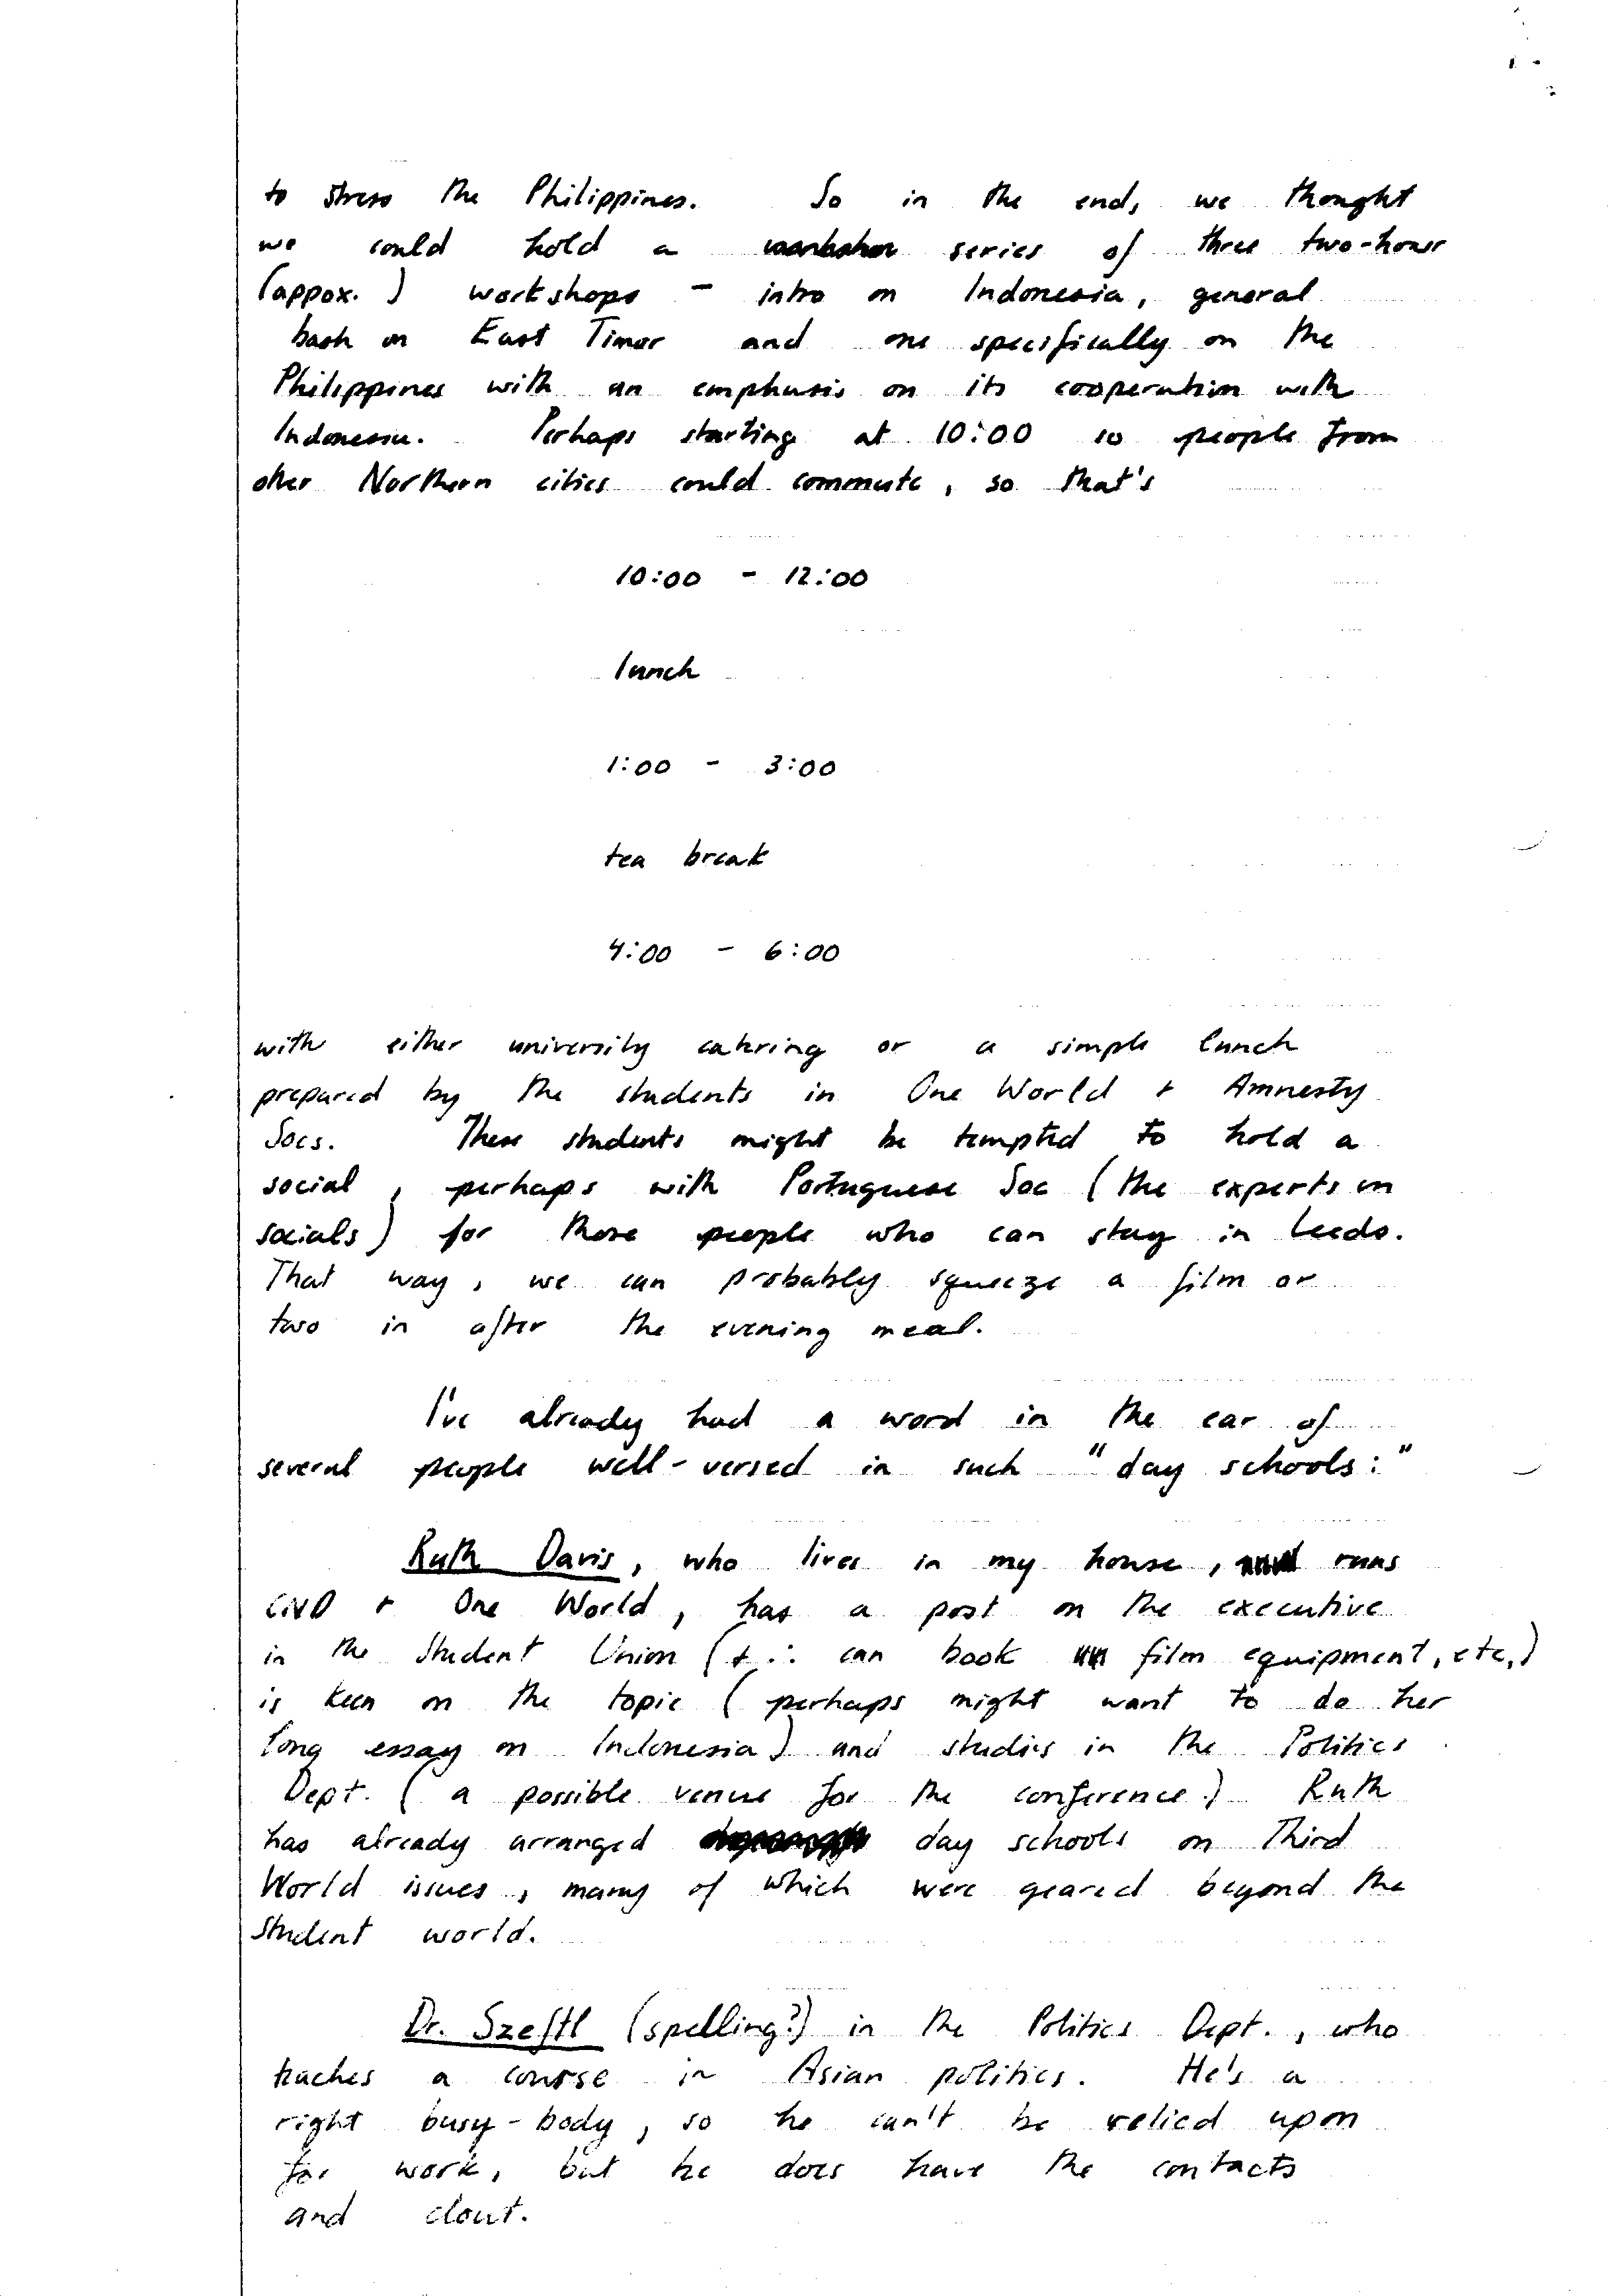 to stress the Philippines. So in the end, we thought
we could hold a series of three two-hour
(appox.) workshops - intro on Indonesia, general
bash on East Timor and one specifically on the
Philippines with an emphasis on its cooperation with
Indonesia. Perhaps starting at 10:00 so people from
other Northern cities could commute, so that's
10:00 - 12:00
lunch
1:00 - 3:00
tea break
4:00 - 6:00
with either university catering or a simple lunch
prepared by the students in One World + Amnesty
Socs. These students might be tempted to hold a
social, perhaps with Portuguese Soc (the experts in
socials) for those people who can stay in Leeds.
That way, we can probably squeeze a film or
two in after the evening meal.
I've already had a word in the ear of
several people well-versed in such "day schools:"
Ruth Davis, who lives in my house, runs
CND + One World, has a post on the executive
in the Student Union (+ ∴ can book film equipment, etc.)
is keen on the topic (perhaps might want to do her
long essay on Indonesia) and studies in the Politics
Dept. (a possible venue for the conference.) Ruth
has already arranged day schools on Third
World issues, many of which were geared beyond the
student world.
Dr. Szeftl (spelling?) in the Politics Dept., who
teaches a course in Asian politics. He's a
right busy-body, so he can't be relied upon
for work, but he does have the contacts
and clout.